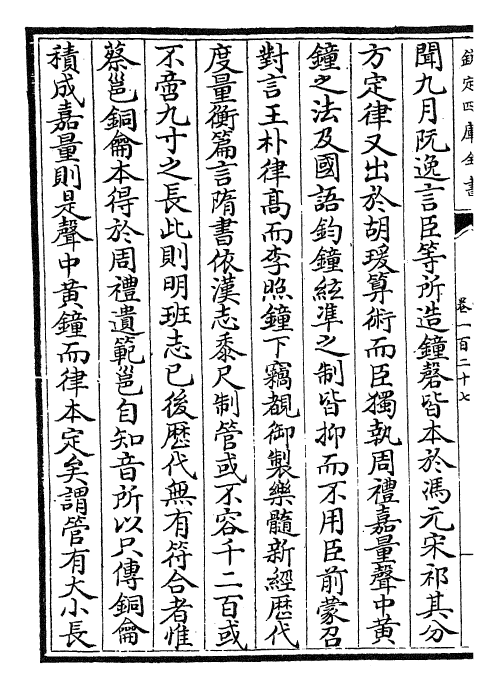 欽定四庫全書
卷一百二十七
聞九月阮逸言臣等所造鐘磬皆本於馮元宋祁其分
方定律又出於胡瑗算術而臣獨執周禮嘉量聲中黃
鐘之法及國語鈞鐘絃準之制皆抑而不用臣前蒙召
對言王朴律髙而李照鐘下竊覩御製樂髓新經歴代
度量衡篇言隋書依漢志黍尺制管或不容千二百或
不啻九寸之長此則明班志已後歴代無有符合者惟
蔡邕銅龠本得於周禮遺範邕自知音所以只傳銅龠
積成嘉量則是聲中黃鐘而律本定矣謂管有大小長